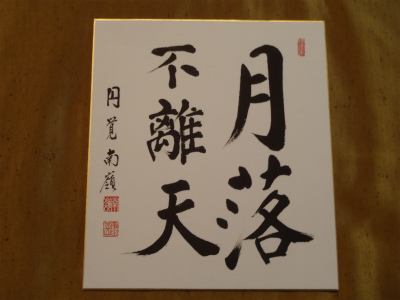 月落
不離天
円覚南嶺